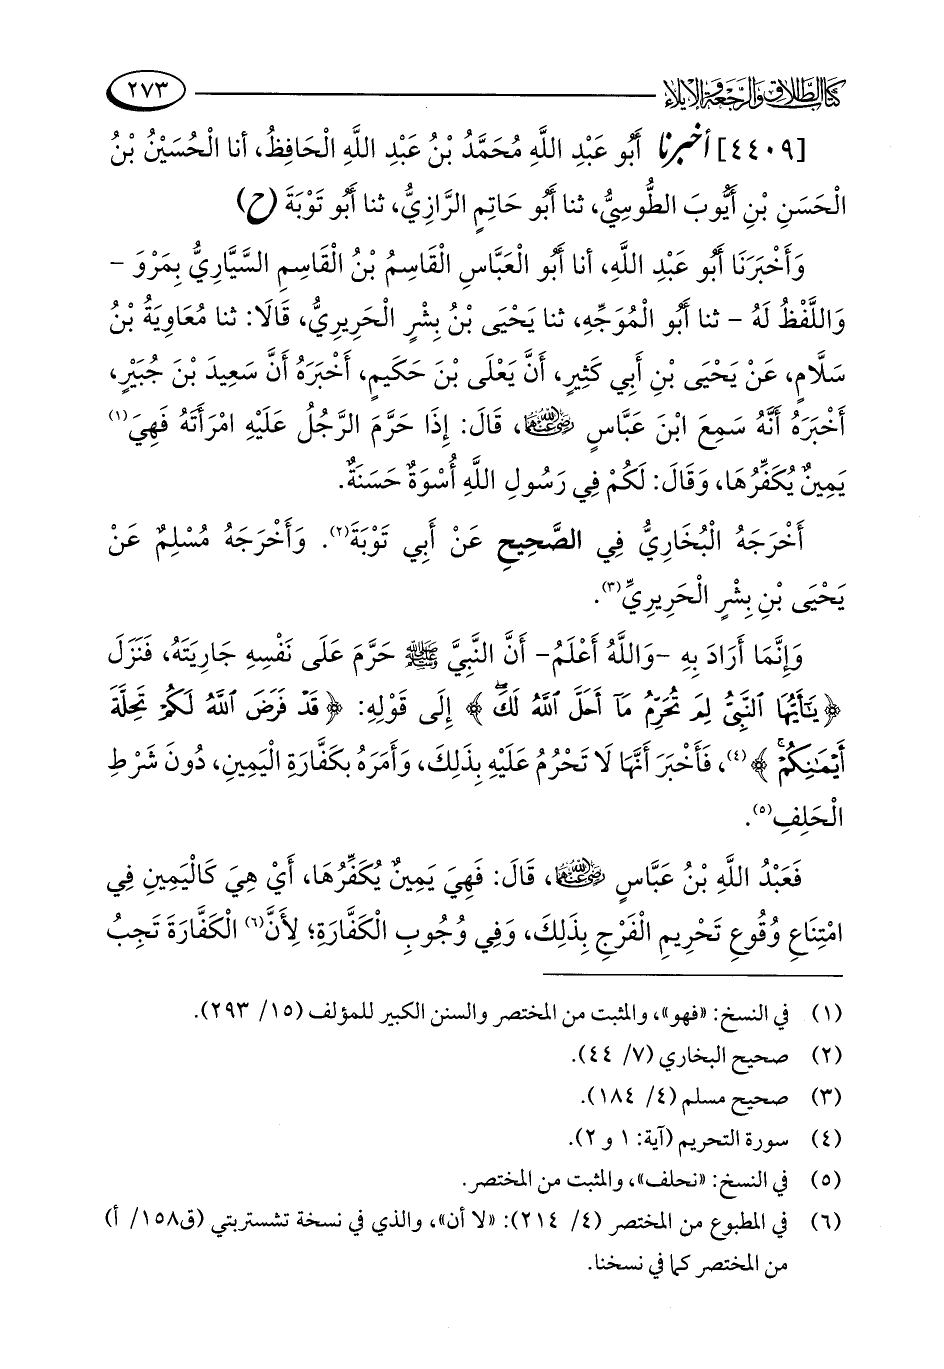 كتاب الطلاق والرجعة والإيلاء ٢٧٣
[٤٤٠٩] أخبرنا أَبُو عَبْدِ اللَّهِ مُحَمَّدُ بْنُ عَبْدِ اللَّهِ الْحَافِظُ، أنا الْحُسَيْنُ بْنُ
الْحَسَنِ بْنِ أَيُّوبَ الطُّوسِيُّ، ثنا أَبُو حَاتِمٍ الرَّازِيُّ، ثنا أَبُو تَوْبَةَ (ح)
وَأَخْبَرَنَا أَبُو عَبْدِ اللَّهِ، أنا أَبُو الْعَبَّاسِ الْقَاسِمُ بْنُ الْقَاسِمِ السَّيَّارِيُّ بِمَرْوَ -
وَاللَّفْظُ لَهُ - ثنا أَبُو الْمُوَجِّهِ، ثنا يَحْيَى بْنُ بِشْرٍ الْحَرِيرِيُّ، قَالَا: ثنا مُعَاوِيَةُ بْنُ
سَلَّامٍ، عَنْ يَحْيَى بْنِ أَبِي كَثِيرٍ، أَنَّ يَعْلَى بْنَ حَكِيمٍ، أَخْبَرَهُ أَنَّ سَعِيدَ بْنَ جُبَيْرٍ،
أَخْبَرَهُ أَنَّهُ سَمِعَ ابْنَ عَبَّاسٍ رضي الله عنهما، قَالَ: إِذَا حَرَّمَ الرَّجُلُ عَلَيْهِ امْرَأَتَهُ فَهِيَ(١)
يَمِينٌ يُكَفِّرُهَا، وَقَالَ: لَكُمْ فِي رَسُولِ اللَّهِ أُسْوَةٌ حَسَنَةٌ.
أَخْرَجَهُ الْبُخَارِيُّ فِي الصَّحِيحِ عَنْ أَبِي تَوْبَةَ(٢). وَأَخْرَجَهُ مُسْلِمٌ عَنْ
يَحْيَى بْنِ بِشْرٍ الْحَرِيرِيِّ(٣).
وَإِنَّمَا أَرَادَ بِهِ -وَاللَّهُ أَعْلَمُ- أَنَّ النَّبِيَّ ﷺ حَرَّمَ عَلَى نَفْسِهِ جَارِيَتَهُ، فَنَزَلَ
﴿يَٰٓأَيُّهَا ٱلنَّبِيُّ لِمَ تُحَرِّمُ مَآ أَحَلَّ ٱللَّهُ لَكَۖ﴾ إِلَى قَوْلِهِ: ﴿قَدۡ فَرَضَ ٱللَّهُ لَكُمۡ تَحِلَّةَ
أَيۡمَٰنِكُمۡۚ﴾(٤)، فَأَخْبَرَ أَنَّهَا لَا تَحْرُمُ عَلَيْهِ بِذَلِكَ، وَأَمَرَهُ بِكَفَّارَةِ الْيَمِينِ، دُونَ شَرْطِ
الْحَلِفِ(٥).
فَعَبْدُ اللَّهِ بْنُ عَبَّاسٍ رضي الله عنهما، قَالَ: فَهِيَ يَمِينٌ يُكَفِّرُهَا، أَيْ هِيَ كَالْيَمِينِ فِي
امْتِنَاعِ وُقُوعِ تَحْرِيمِ الْفَرْجِ بِذَلِكَ، وَفِي وُجُوبِ الْكَفَّارَةِ؛ لِأَنَّ(٦) الْكَفَّارَةَ تَجِبُ
(١) في النسخ: «فهو»، والمثبت من المختصر والسنن الكبير للمؤلف (١٥/ ٢٩٣).
(٢) صحيح البخاري (٧/ ٤٤).
(٣) صحيح مسلم (٤/ ١٨٤).
(٤) سورة التحريم (آية: ١ و ٢).
(٥) في النسخ: «نحلف»، والمثبت من المختصر.
(٦) في المطبوع من المختصر (٤/ ٢١٤): «لا أن»، والذي في نسخة تشستربتي (ق١٥٨/ أ)
من المختصر كما في نسخنا.